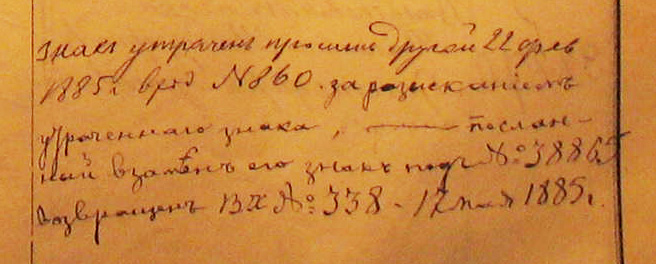 Знакъ утраченъ просили другой 22 фев
1885 г. вход N 860. за розисканіемъ
утраченнаго знака, — послан-
ный взамѣнъ его знакъ подъ № 38865
возвращенъ ВХ № 338 - 17 мая 1885 г.